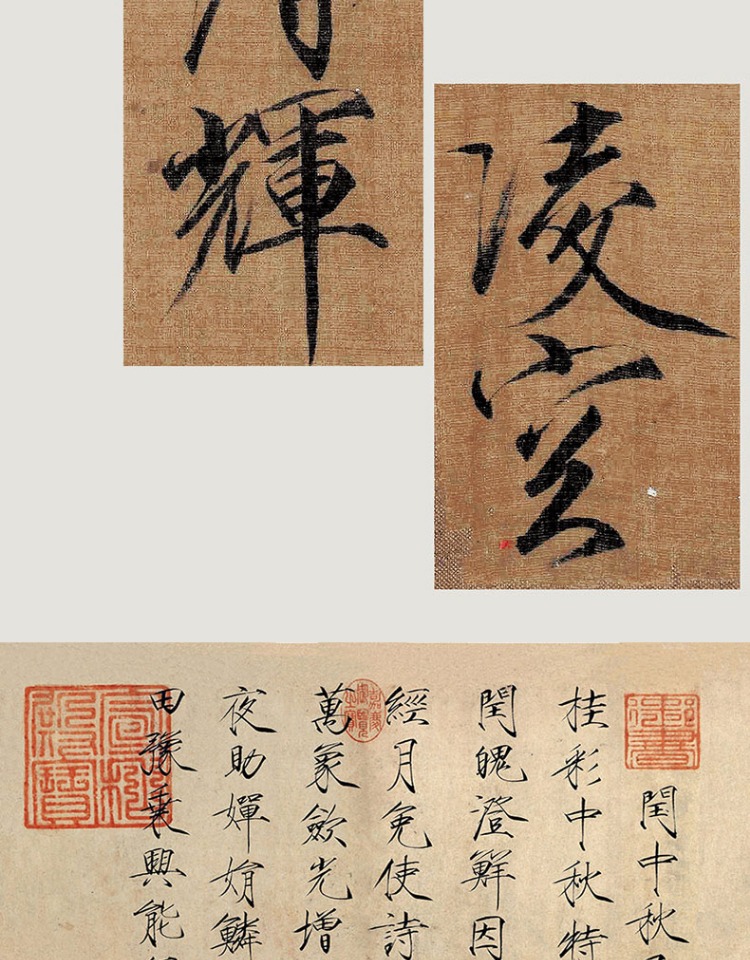 陵空
輝
御書
閏中秋
桂彩中秋特
閏魄澄鮮因
經月免使詩
萬象斂光增
夜助嬋娟鱗
田豫乘興能